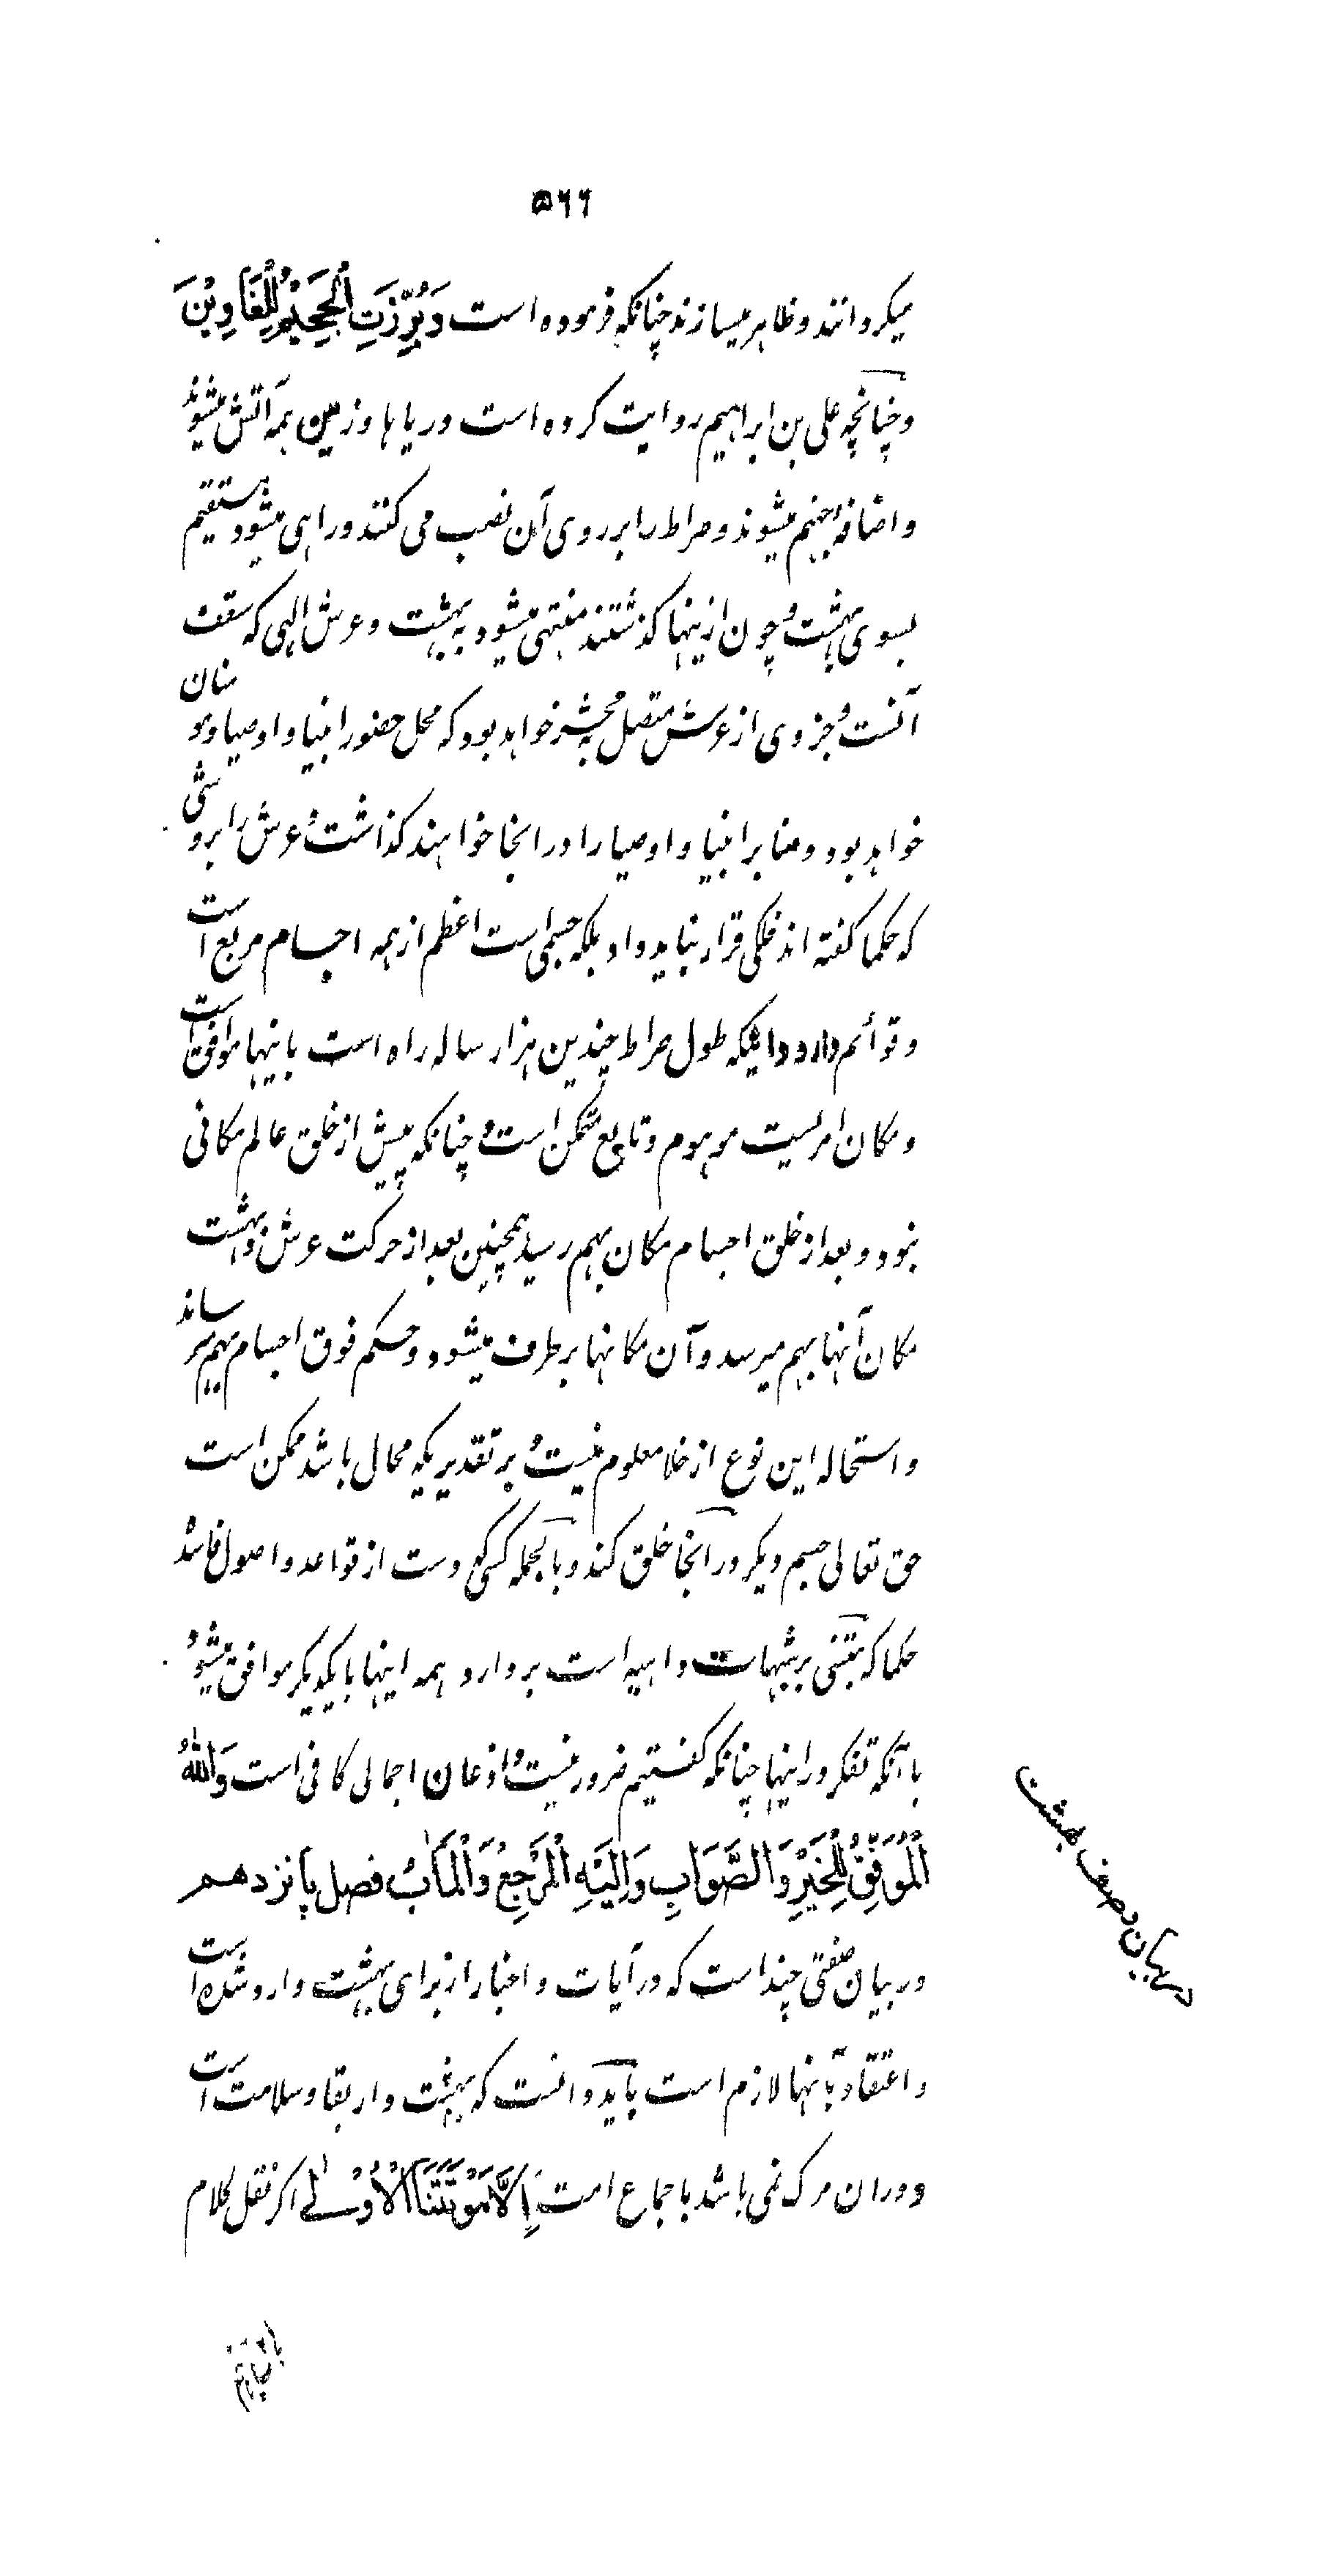 ۵۶۶
میکردانند و ظاهر میسازند چنانکه فرموده است وَبُرِّزَتِ الْجَحِيْمُ لِلْغَاوِيْنَ
و چنانچه علی بن ابراهیم روایت کرده است دریاها و زمین همه آتش میشوند
و اضافه جهنم میشوند و صراط را بر روی آن نصب می کنند و راهی میشود مستقیم
بسوی بهشت و چون ازینها کذشتند منتهی میشود به بهشت و عرش الهی که سقف
آنست و جزوی از عرش متصل به محشر خواهد بود که محل حضور انبیا و اوصیا و مومنان
خواهد بود و منابر انبیا و اوصیا را در انجا خواهند کذاشت و عرش را بروشی
که حکما کفته اند فلکی قرار نباید داد بلکه جسمی است اعظم از همه اجسام مربع است
و قوائم دارد و اینکه طول صراط چندین هزار ساله راه است باینها موافق است
و مکان امریست موهوم و تابع متمکن است و چنانکه پیش از خلق عالم مکانی
نبود و بعد از خلق اجسام مکان بهم رسید همچنین بعد از حرکت عرش و بهشت
مکان آنها بهم میرسد و آن مکانها برطرف میشود و حکم فوق اجسام بهم میرساند
و استحاله این نوع از خلا معلوم نیست و بر تقدیریکه محال باشد ممکن است
حق تعالی جسم دیکر در آنجا خلق کند و بالجمله کسیکه دست از قواعد و اصول فاسد
حکما که مبتنی بر شبهات واهیه است بردارد همه اینها با یکدیکر موافق میشود
با آنکه تفکر در اینها چنانکه کفتیم ضرور نیست و اذعان اجمالی کافی است وَاللهُ
الْمُوَفِّقُ لِلْخَيْرِ وَالصَّوَابِ وَاِلَيْهِ الْمَرْجِعُ وَالْمَاٰبُ فصل پانزدهم
در بیان صفتی چند است که در آیات و اخبار از برای بهشت وارد شده است
و اعتقاد بآنها لازم است باید دانست که بهشت دار بقا و سلامت است
و در ان مرک نمی باشد باجماع امت اِلَّا مَوْتَتَنَا الْاُوْلٰى اکر نقل کلام
در بیان وصف بهشت